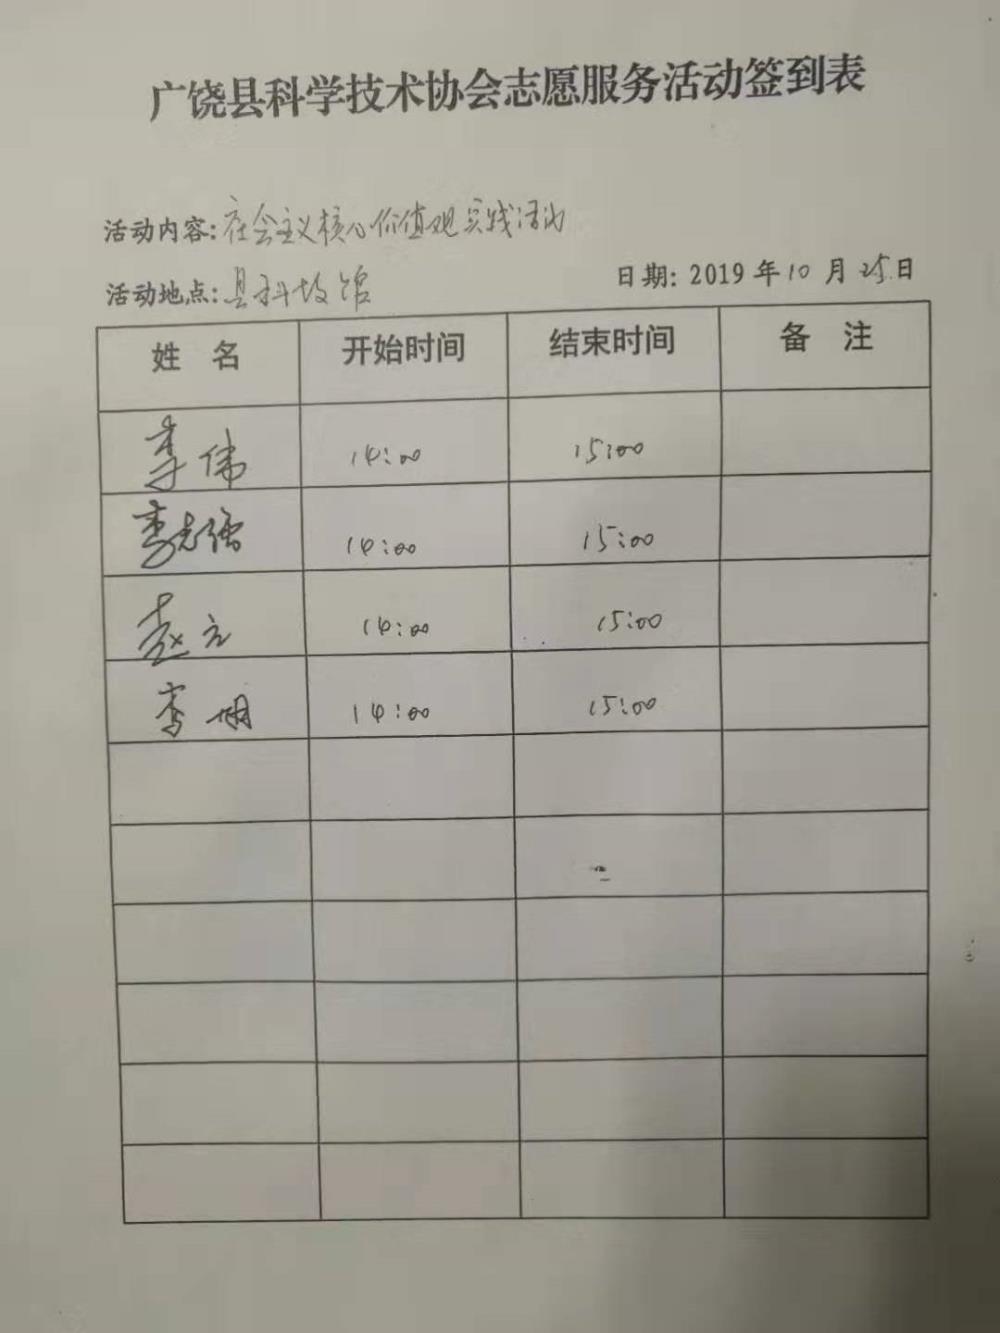 广饶县科学技术协会志愿服务活动签到表
活动内容:社会主义核心价值观实践活动
活动地点:县科技馆 日期: 2019 年 10 月 25 日
姓 名 开始时间 结束时间 备 注
李伟 14:00 15:00
李志强 14:00 15:00
赵云 14:00 15:00
14:00 15:00